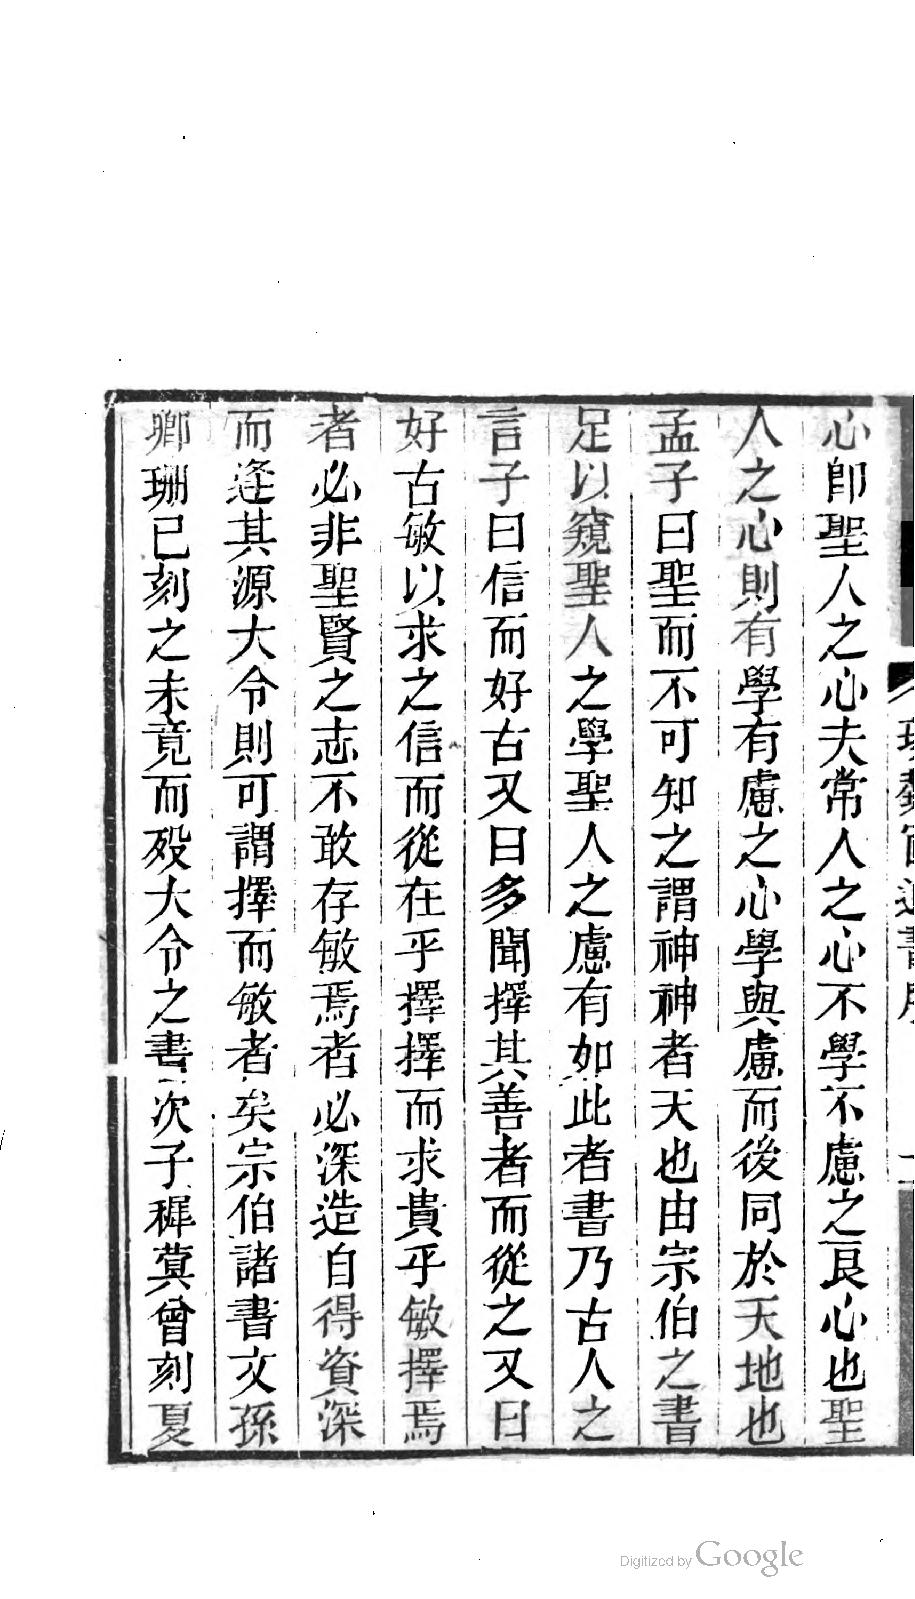 心卽聖人之心夫常人之心不學不慮之良心也聖
人之心則有學有慮之心學與慮而後同於天地也
孟子曰聖而不可知之謂神神者天也由宗伯之書
足以窺聖人之學聖人之慮有如此者書乃古人之
言子曰信而好古又曰多聞擇其善者而從之又曰
好古敏以求之信而從在乎擇擇而求貴乎敏擇焉
者必非聖賢之志不敢存敏焉者必深造自得資深
而逢其源大令則可謂擇而敏者矣宗伯諸書文孫
卿珊已刻之未竟而歿大令之書次子穉蓂曾刻夏
Digitized by Google